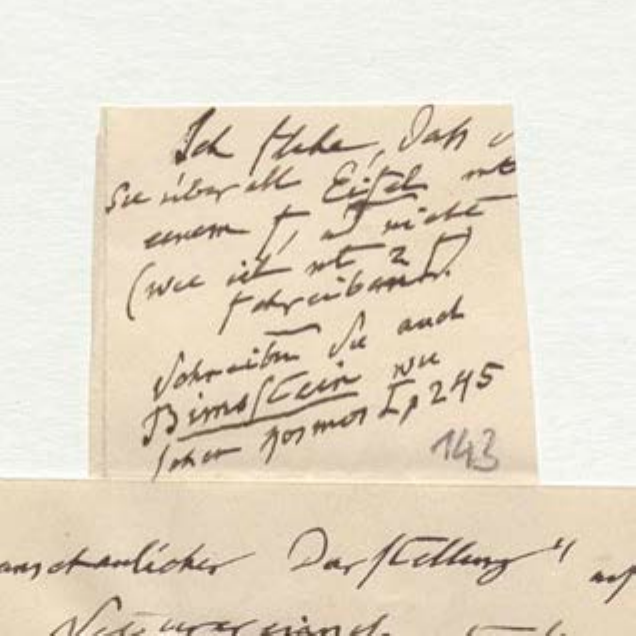 Ich sehe, daß
Sie überall Eifel mit
einem f, und nicht
(wie ich mit 2 f)
schreiben.
Schreiben Sie auch
Bimsstein wie
schon Kosmos I p 245
143
anschaulicher Darstellung" auf